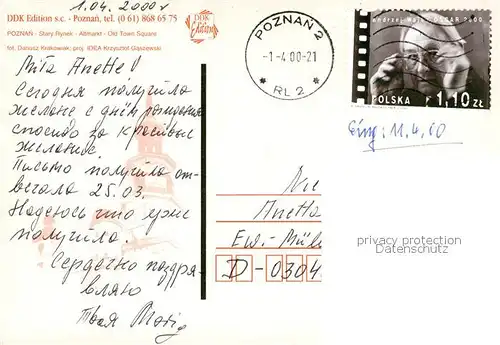 1.04.2000r
DDK Edition s.c. - Poznań, tel. (0 61) 868 65 75
DDK
Edition
POZNAŃ - Stary Rynek - Altmarkt - Old Town Square
fot. Dariusz Krakowiak; proj. IDEA Krzysztof Gąszewski
POZNAŃ 2
-1-4.00-21
RL 2
andrzej Wajda OSCAR 2000
POLSKA 1,10 ZŁ
Eing: 11.4.00
Miła Anette!
Сегодня получила
желане с днём рождения
спосибо за красивые
желание.
Письмо получила от-
вечала 25.03.
Надеюсь что уже
получила.
Сердечно поздра-
вляю
Твоя
Anette
Ew.-
D-0304
privacy protection
Datenschutz